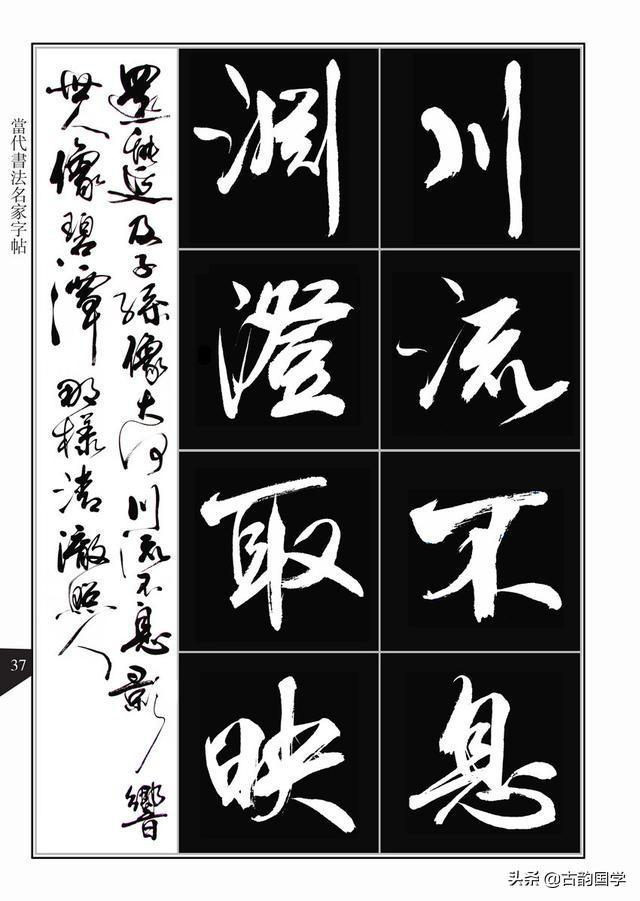 川流不息
渊澄取映
還能延及子孫像大河川流不息影響
世人像碧潭那樣清澈照人
當代書法名家字帖
37
头条 @古韵国学